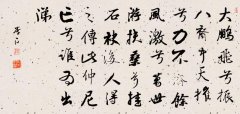 大鵬飛兮振
八裔中天摧
兮力不濟餘
風激兮萬世
遊扶桑兮挂
石袂後人得
之傳此仲尼
亡兮誰為出
涕